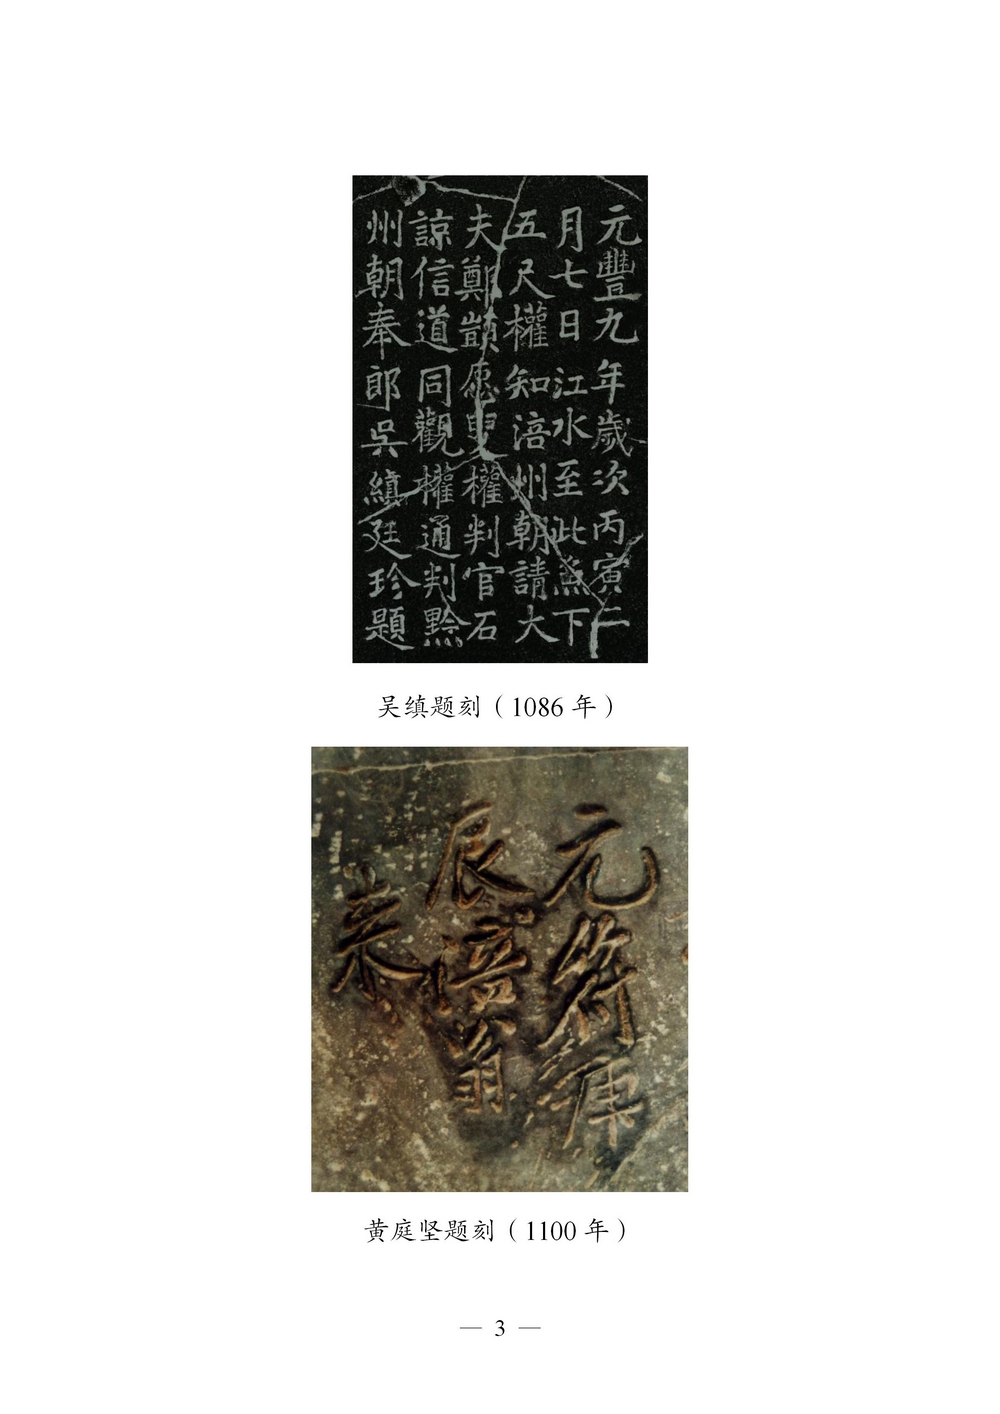 元豐九年歲次丙寅二
月七日江水至此魚下
五尺權知涪州朝請大
夫鄭顗愿叟權判官石
諒信道同觀權通判黔
州朝奉郎吳縝廷珍題
吴缜题刻（1086 年）
元符庚
辰涪翁
来
黄庭坚题刻（1100 年）
— 3 —